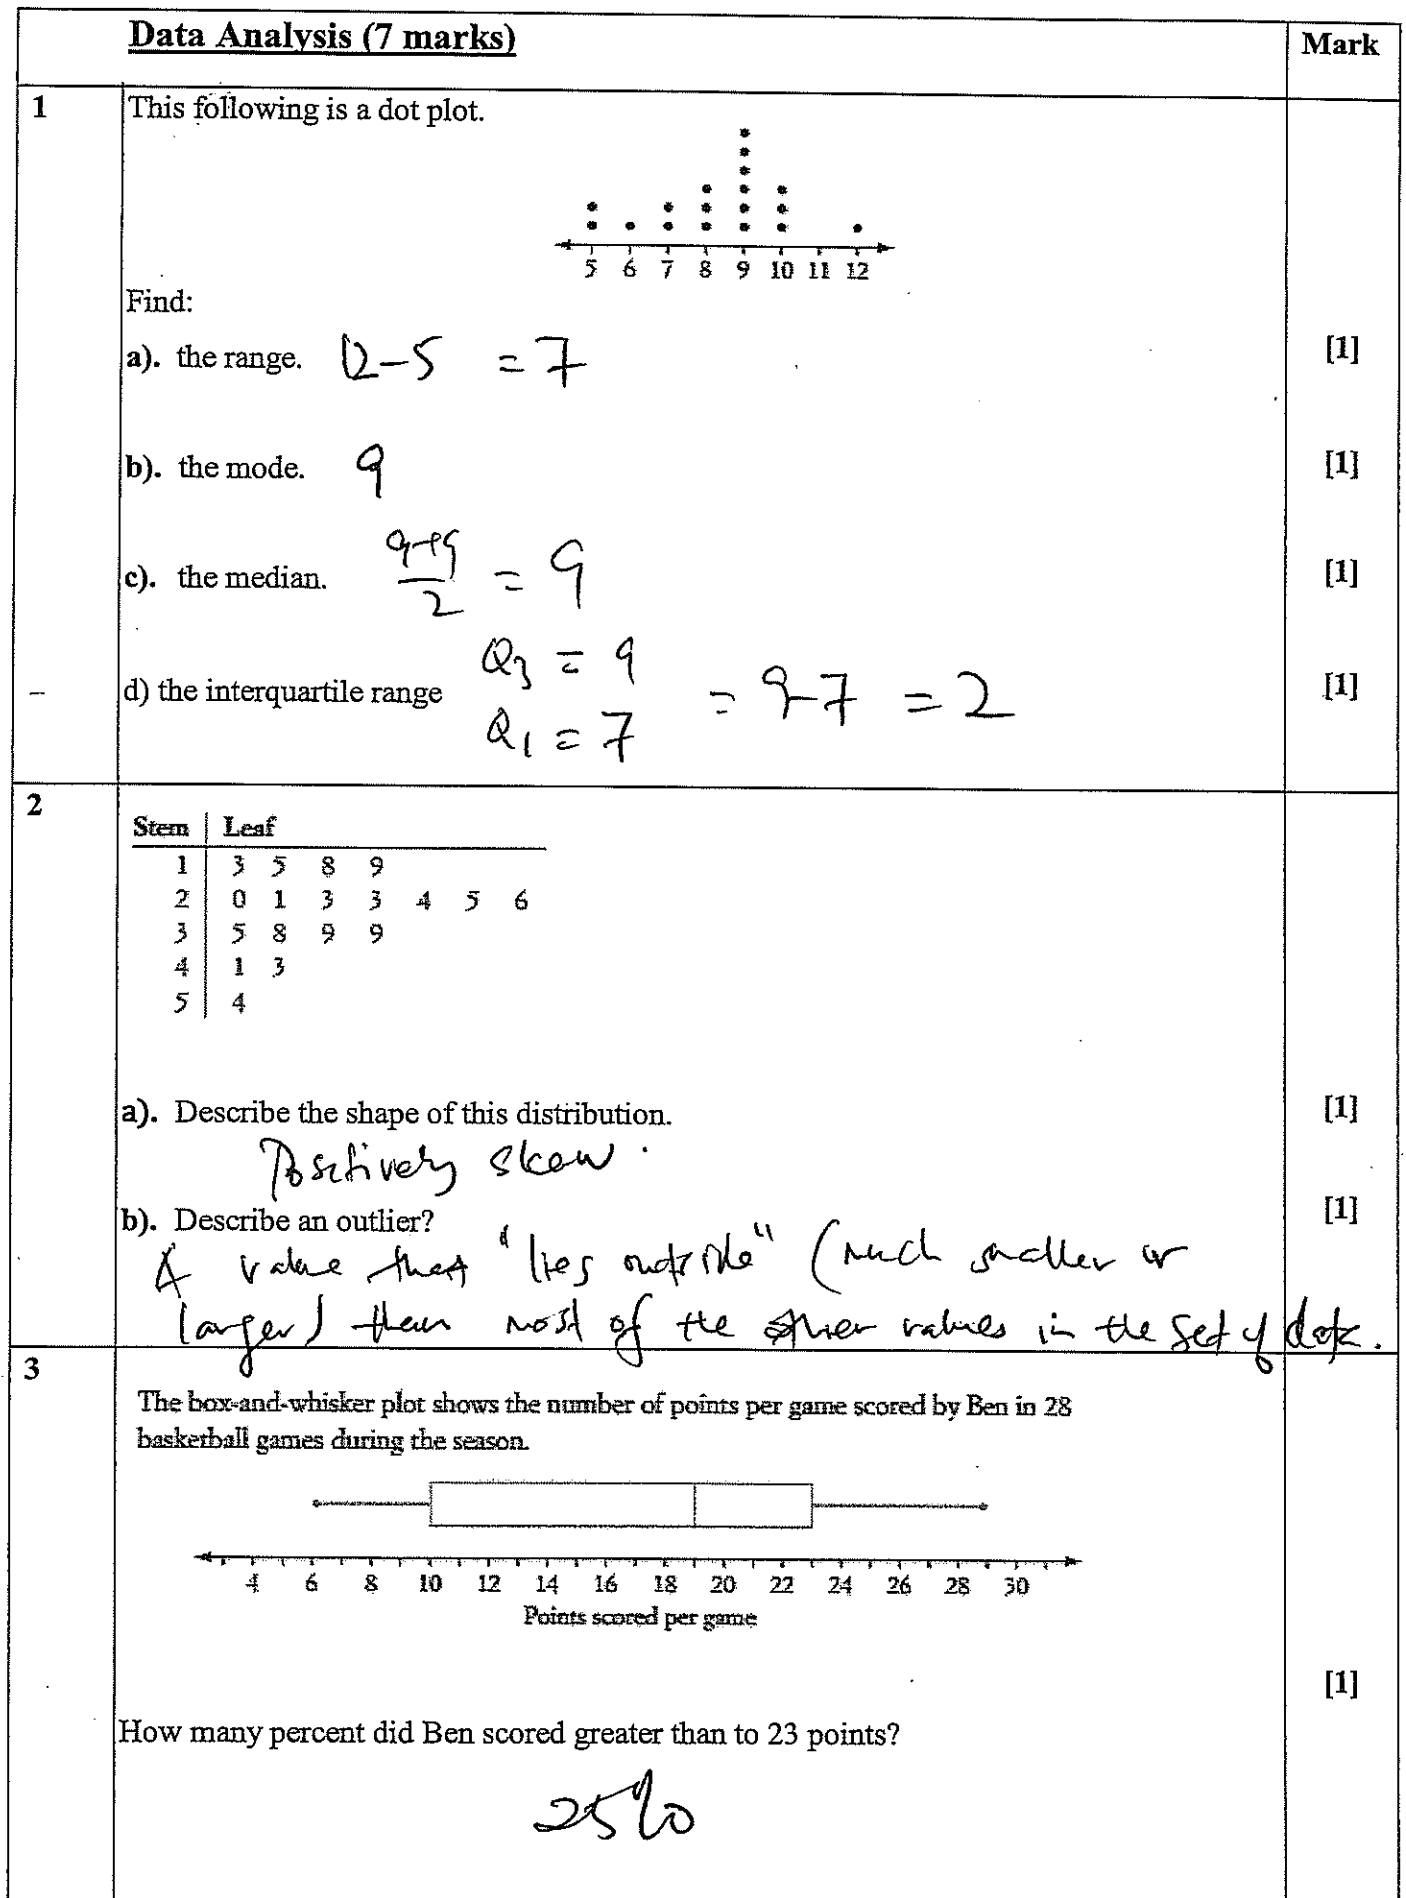 Data Analysis (7 marks)
Mark
1
This following is a dot plot.
5 6 7 8 9 10 11 12
Find:
a). the range. 12-5 = 7 [1]
b). the mode. 9 [1]
c). the median. 9+9/2 = 9 [1]
Q3 = 9
d) the interquartile range = 9-7 = 2 [1]
Q1 = 7
2
Stem | Leaf
1 | 3 5 8 9
2 | 0 1 3 3 4 5 6
3 | 5 8 9 9
4 | 1 3
5 | 4
a). Describe the shape of this distribution. [1]
Positively skew.
b). Describe an outlier? [1]
A value that "lies outside" (much smaller or
larger) than most of the other values in the set of data.
3
The box-and-whisker plot shows the number of points per game scored by Ben in 28
basketball games during the season.
4 6 8 10 12 14 16 18 20 22 24 26 28 30
Points scored per game
[1]
How many percent did Ben scored greater than to 23 points?
25%